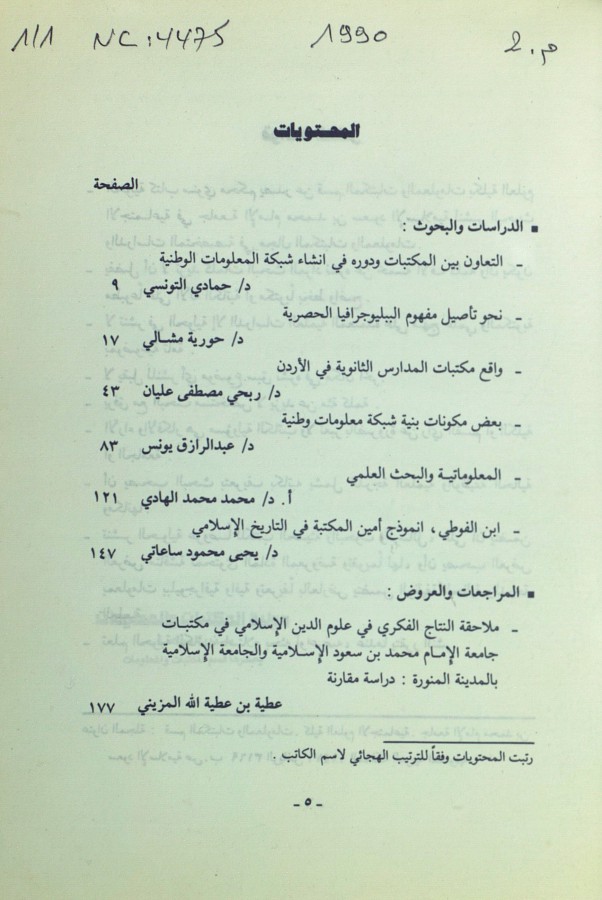 1/1 NC:4475 1990 م. 2
المحتويات
الصفحة
■ الدراسات والبحوث :
- التعاون بين المكتبات ودوره في انشاء شبكة المعلومات الوطنية
د/ حمادي التونسي ٩
- نحو تأصيل مفهوم الببليوجرافيا الحصرية
د/ حورية مشالي ١٧
- واقع مكتبات المدارس الثانوية في الأردن
د/ ربحي مصطفى عليان ٤٣
- بعض مكونات بنية شبكة معلومات وطنية
د/ عبدالرازق يونس ٨٣
- المعلوماتية والبحث العلمي
أ. د/ محمد محمد الهادي ١٢١
- ابن الفوطي، انموذج أمين المكتبة في التاريخ الإسلامي
د/ يحيى محمود ساعاتي ١٤٧
■ المراجعات والعروض :
- ملاحقة النتاج الفكري في علوم الدين الإسلامي في مكتبات
جامعة الإمام محمد بن سعود الإسلامية والجامعة الإسلامية
بالمدينة المنورة : دراسة مقارنة
عطية بن عطية الله المزيني ١٧٧
رتبت المحتويات وفقاً للترتيب الهجائي لاسم الكاتب .
- ٥ -